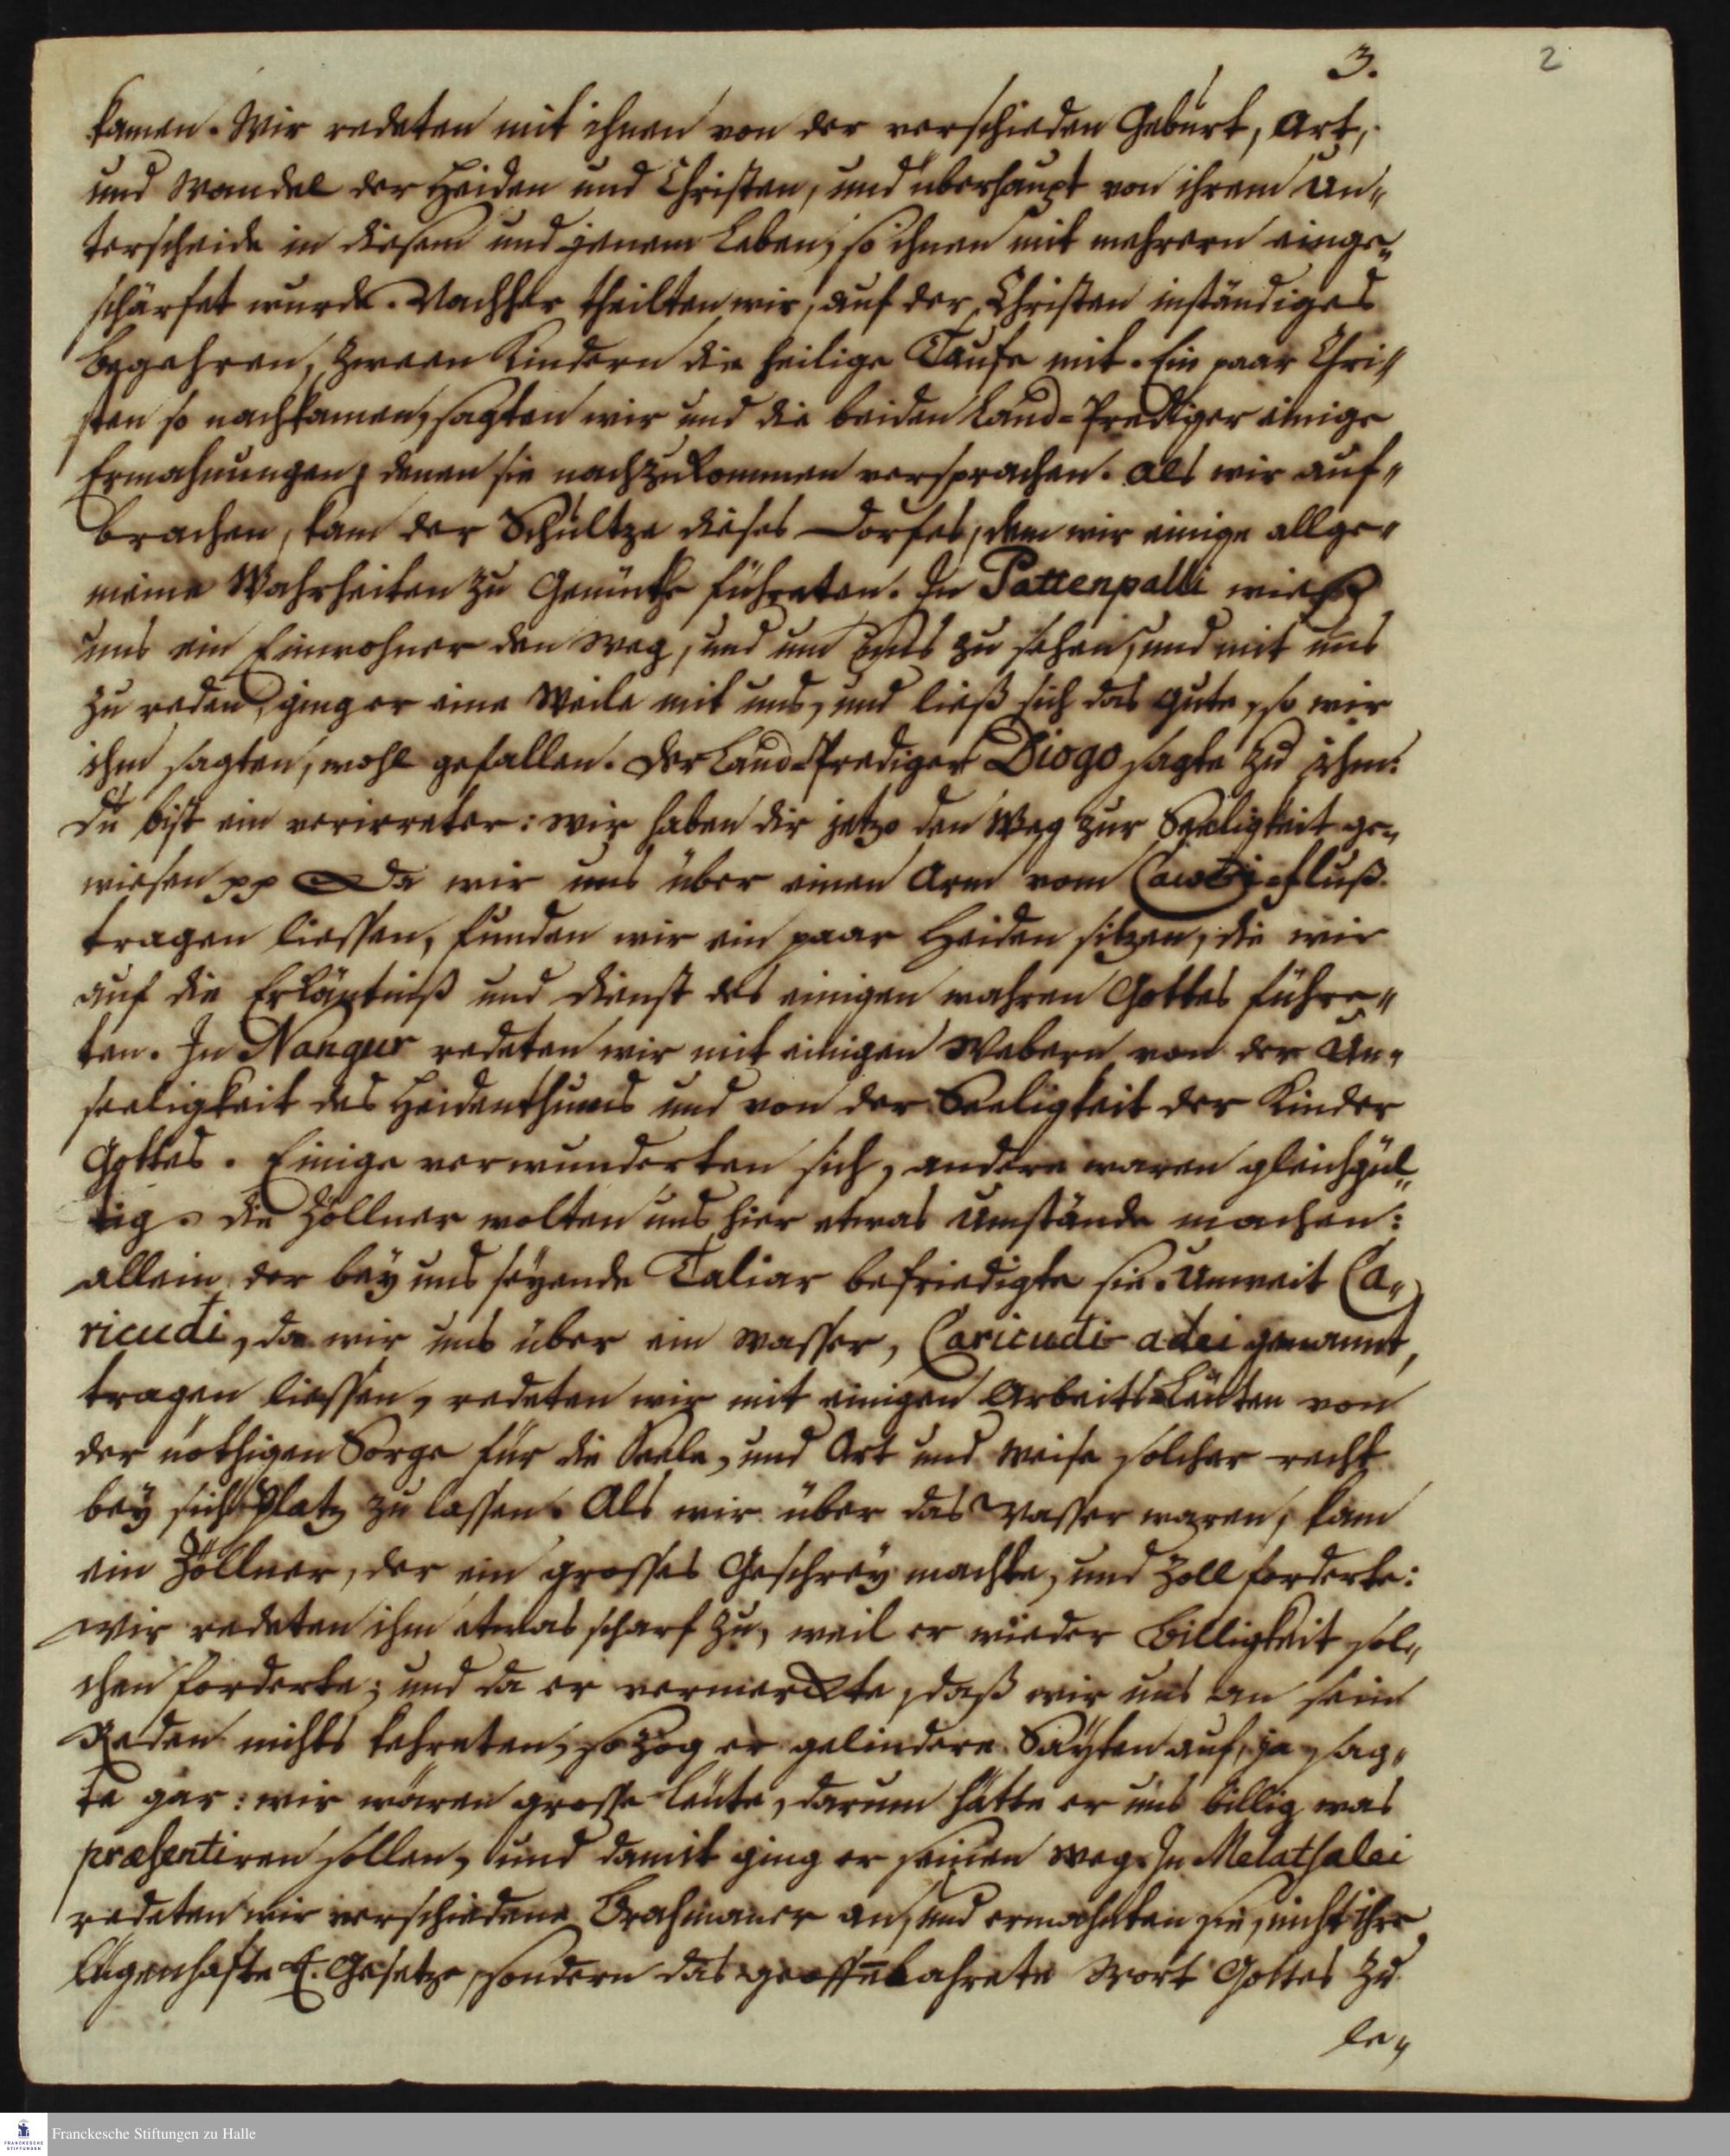 3.
2
kamen. Wir redeten mit ihnen von der verschieden Geburt, Art,
und Wandel der Heiden und Christen, und überhaupt von ihrem Un„
terscheide in diesem und jenem Leben, so ihnen mit mehrern einge„
schärfet wurde. Nachher theilten wir, auf der Christen inständiges
Begehren, zween Kindern die heilige Taufe mit. Ein paar Chri„
sten so nachkamen, sagten wir und die beiden Land-Prediger einige
Ermahnungen, denen sie nachzukommen versprachen. Als wir auf„
brachen, kam der Schultze dieses Dorfes, dem wir einige allge„
meine Wahrheiten zu Gemüthe führeten. In Pattenpalli wieß
uns ein Einwohner den Weg, und um uns zu sehen, und mit uns
zu reden, ging er eine Weile mit uns, und ließ sich das Gute, so wir
ihm sagten, wohl gefallen. Der Land-Prediger Diogo sagte zu ihm:
Du bist ein verirreter: wir haben dir jetzo den Weg zur Seeligkeit ge„
wiesen pp Da wir uns über einen Arm vom Caweri-Fluß
tragen liessen, funden wir ein paar Heiden sitzen, die wir
auf die Erkäntniß und Dienst des einigen wahren Gottes führe„
ten. In Nangur redeten wir mit einigen Webern von der Un„
seeligkeit des Heidenthums und von der Seeligkeit der Kinder
Gottes. Einige verwunderten sich, andere waren gleichgül„
tig. Die Zöllner wolten uns hier etwas Umstände machen:
allein der bey uns seyende Taliar befriedigte sie. Unweit Ca„
ricudi, da wir uns über ein Wasser, Caricudi-adei genannt,
tragen liessen, redeten wir mit einigen Arbeits-Leuten von
der nöthigen Sorge für die Seele, und Art und Weise solcher recht
bey sich Platz zu lassen. Als wir über das Wasser waren, kam
ein Zöllner, der ein grosses Geschrey machte, und Zoll forderte:
Wir redeten ihm etwas scharf zu, weil er wieder Billigkeit sol„
chen forderte; und da er vermerckte, daß wir uns an sein
Reden nichts kehreten, so zog er gelindere Säyten auf, ja, sag„
te gar: wir wären grosse Leute, darum hätte er uns billig was
præsentiren sollen, und damit ging er seinen Weg. In Melatsalei
redeten wir verschiedene Brahmaner an, und ermahnten sie, nicht ihre
lügenhafte E. Gesetze, sondern das geoffenbahrete Wort Gottes zu
le„
Franckesche Stiftungen zu Halle
FRANCKESCHE
STIFTUNGEN